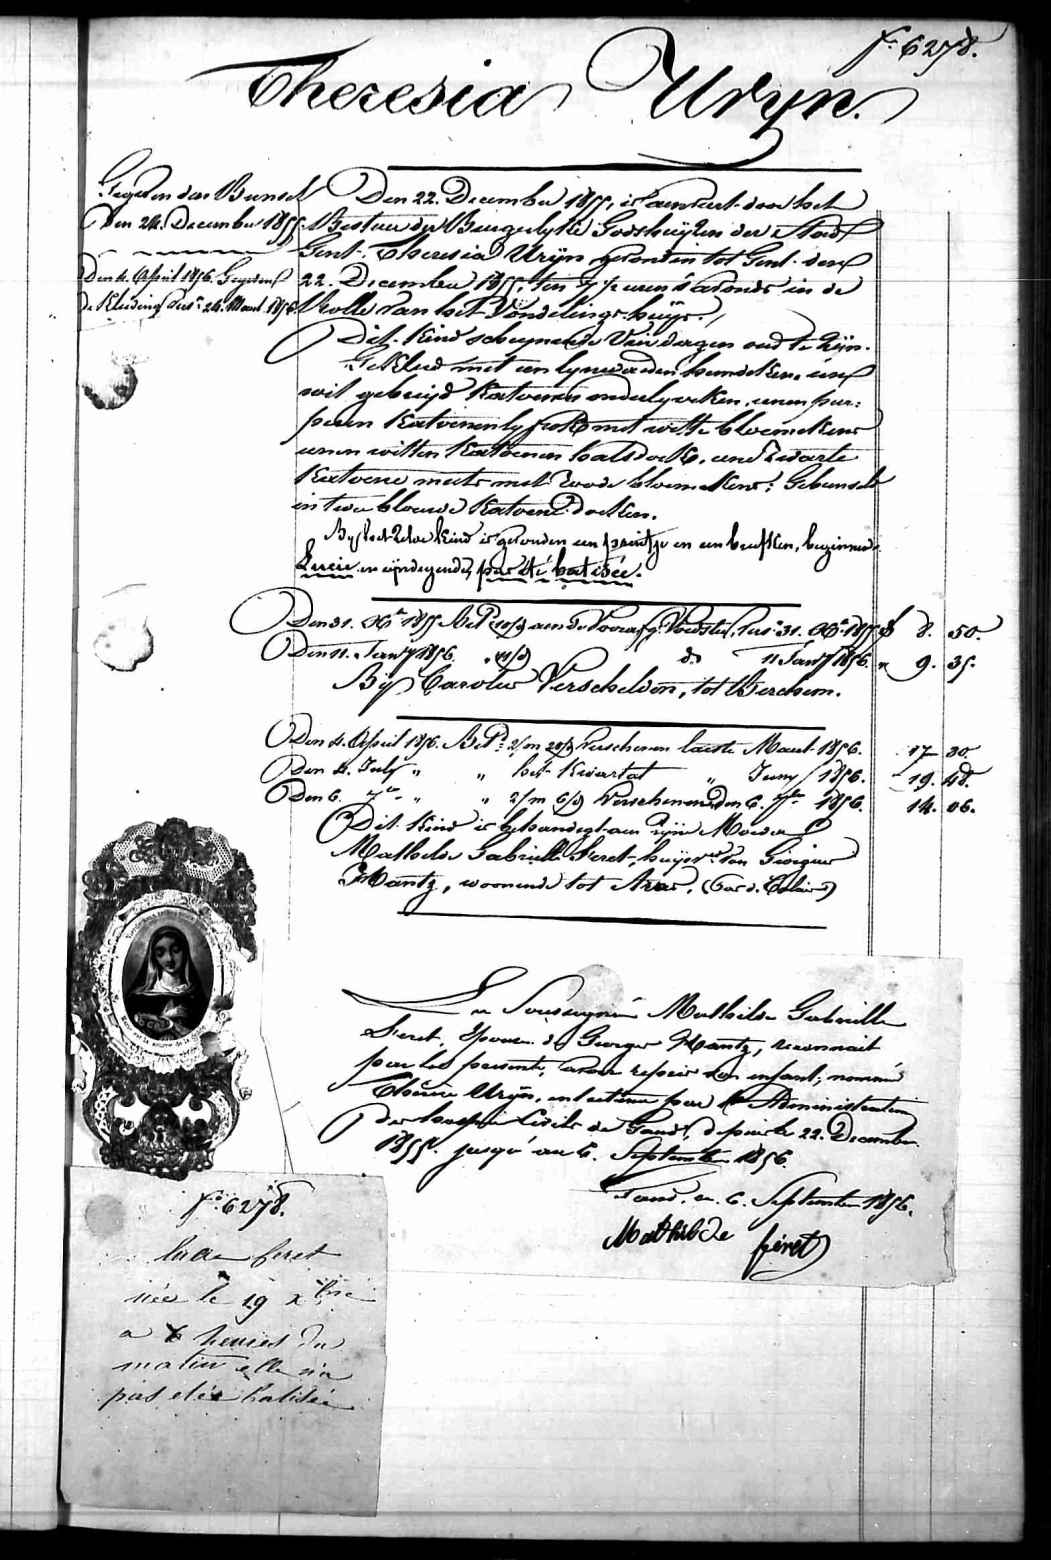 f° 6278.
Theresia Uryn.
Gegeven den Bunsel
Den 24. December 1855.
Den 4. April 1856. Gegeven
de Kleeding tusn 24. Maart 1856.
Den 22. December 1855, is aenveert door het
Bestuer der Burgerlyke Godshuyzen der Stad
Gent, Theresia Uryn, gevonden tot Gent den
22. December 1855, ten 7 ½ uren 's avonds in de
Rolle van het Vondelingshuys.
Dit Kind schynende Vier dagen oud te zyn.
Gekleed met een lynwaeden hemdeken, een
wit gebreyd Katoenen onderlyveken, eenen pur:
peren Katoenen lyfrok met witte bloemekens
eenen witten Katoenen halsdoek, eene zwarte
Katoene muts met roode bloemekens; Gebunseld
in twee blauwe Katoene doeken.
By het zelve kind is gevonden een santje en een briefken, beginnende
Lucie en eyndigende, pas été batisée.
Den 31. Xbr 1855 Betd (10/d) aen de Voorafg. Voedster, tusn 31. Xbr 1855 f 8. 50.
Den 11. Jany 1856. " (11/d) do 11 Jany 1856. " 9. 35.
By Carolus Verschelden, tot Berchem.
Den 4. April 1856. Betd 2/m 20/d Verschenen laetste Maart 1856. 17 30
Den 4. July " " het Kwartael " Juny 1856. 19. 48.
Den 6. 7br " " 2/m 6/d Verschenen den 6. 7br 1856. 14. 06.
Dit Kind is behandigt aen zyne Moeder
Mathilde Gabrielle Feret, huysvr van Georges
Mantz, woonende tot Arras. (Pas de Calais)
La Soussignée Mathilde Gabrielle
Feret, Epouse de Georges Mantz, reconnait
par les presentes, avoir repris son enfant, nommé
Thérèse Uryn, entretenu par l'Administration
des hospices Civils de Gand, depuis le 22. Decembre
1855. jusqu'au 6. Septembre 1856.
Gand, ce 6. Septembre 1856.
Mathilde feret
f° 6278.
lucie feret
née le 19 xbre
a 6 heures du
matin elle n'a
pas etée batisée